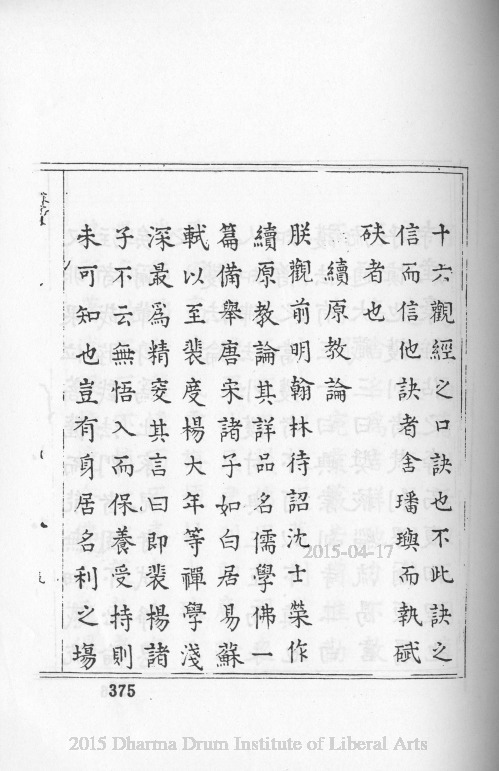 十六觀經之口訣也不此訣之
信而信他訣者舍璠璵而執碔
砆者也
續原教論
朕觀前明翰林待詔沈士榮作
續原教論其詳品名儒學佛一
篇備舉唐宋諸子如白居易蘇
軾以至裴度楊大年等禪學淺
深最爲精窔其言曰即裴楊諸
子不云無悟入而保養受持則
未可知也豈有身居名利之場
375
2015-04-17
2015 Dharma Drum Institute of Liberal Arts